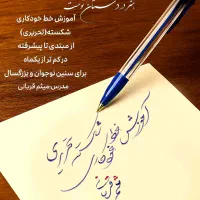 هنر در دستان توست
آموزش خط خودکاری
شکسته(تحریری)
از مبتدی تا پیشرفته
در کم تر از یکماه
برای سنین نوجوان و بزرگسال
مدرس:میثم قربانی
آموزش خط خودکاری
شکسته تحریری